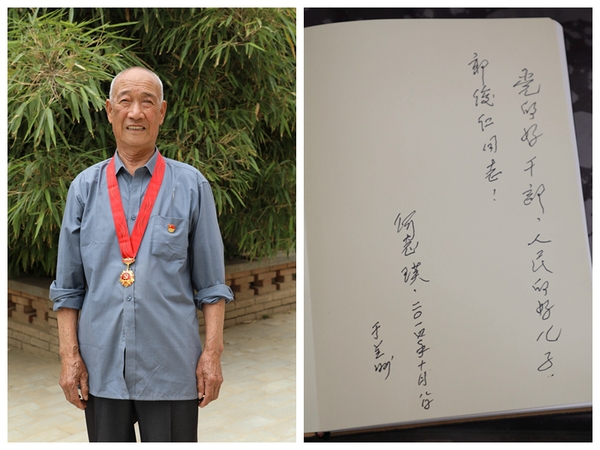 党的好干部、人民的好儿子.
郭俊仁同志！
二〇一四年十月
于兰州